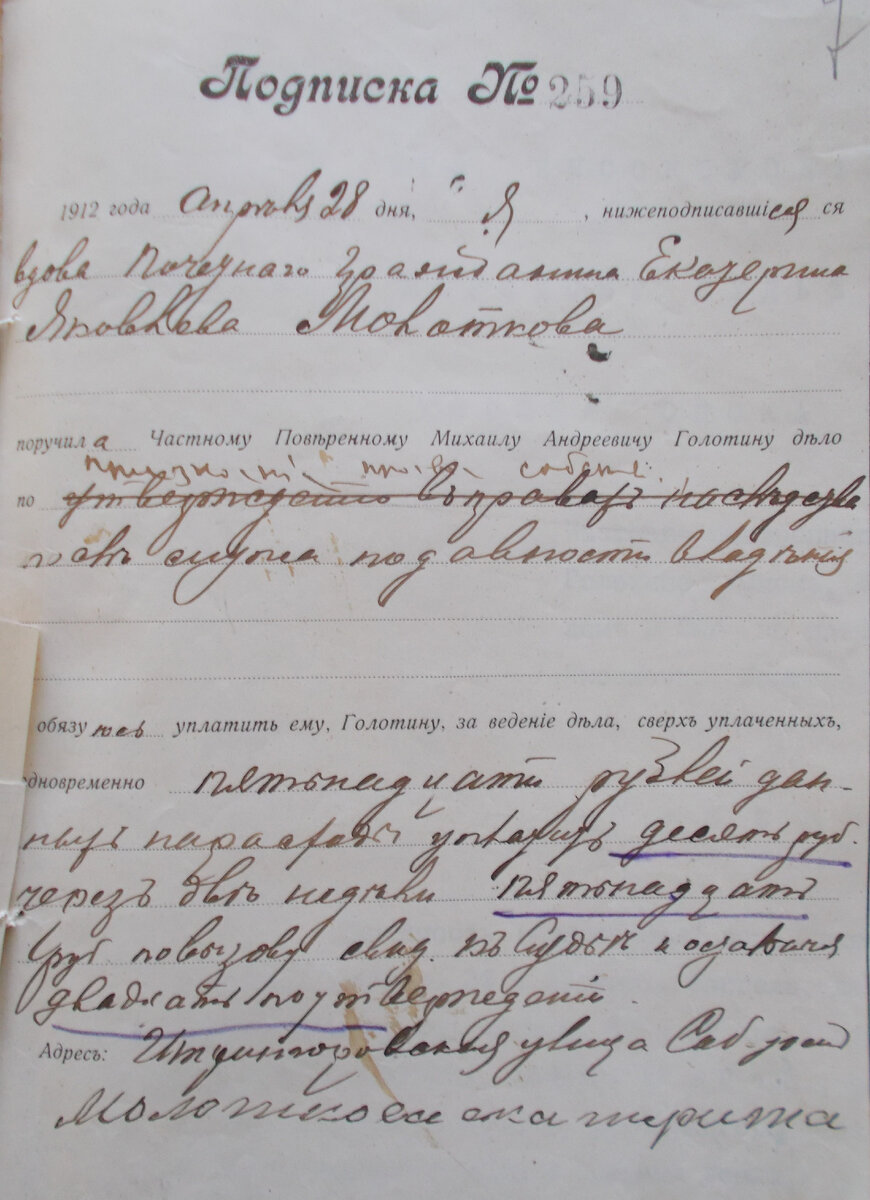 7
Подписка № 259
1912 года Апрѣля 28 дня, Я, нижеподписавшіся ся
вдова почетнаго гражданина Екатерина
Яковлева Молоткова
поручила Частному Повѣренному Михаилу Андреевичу Голотину дѣло
собств.
по утвержденію въ правахъ наслѣдства
по давности владѣнія
обязуюсь уплатить ему, Голотину, за веденіе дѣла, сверхъ уплаченныхъ,
одновременно пятьнадцать рублей дан-
ныхъ на расходы уплатить десять руб.
черезъ двѣ недѣли пятьнадцать
руб по вызову свид. къ Судьи и остальныя
двадцать по утвержденіи.
Адресъ: улица Соб. дом
Молоткова екатирина